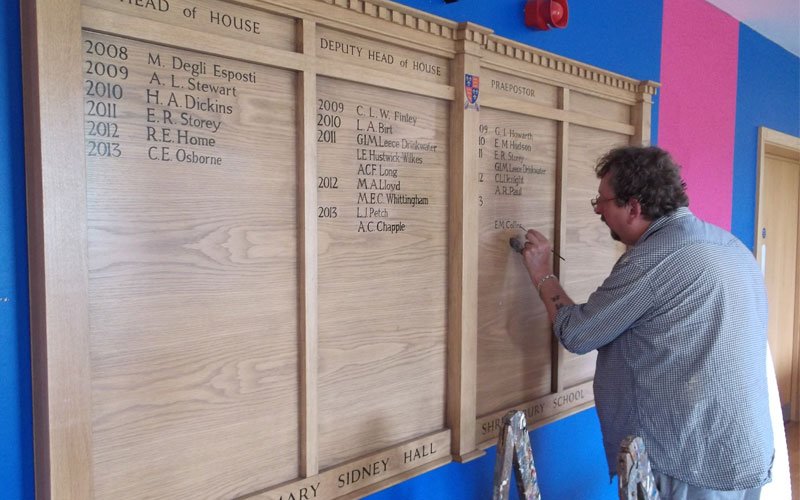 HEAD of HOUSE
2008 M. Degli Esposti
2009 A. L. Stewart
2010 H. A. Dickins
2011 E. R. Storey
2012 R. E. Home
2013 C. E. Osborne
DEPUTY HEAD of HOUSE
2009 C. L. W. Finley
2010 L. A. Birt
2011 G.I.M. Leece Drinkwater
I.E. Hustwick-Wilkes
A.C.F. Long
2012 M. A. Lloyd
M.E.C. Whittingham
2013 L.J. Petch
A. C. Chapple
PRAEPOSTOR
09 G. J. Howarth
10 E. M. Hudson
11 E. R. Storey
G.I.M. Leece Drinkwater
12
A. R. Paul
3
E.M. Collins
MARY SIDNEY HALL
SHREWSBURY SCHOOL